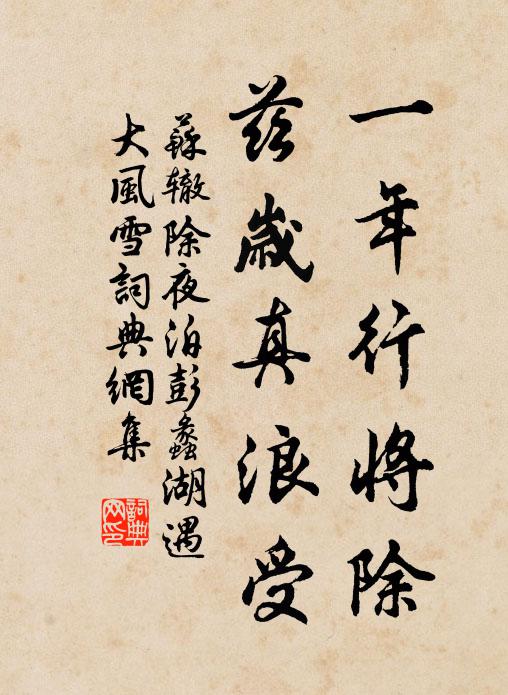 一年行將除
茲歲真浪受
蘇轍除夜泊彭蠡湖遇
大風雪詞典網集
詞典
网印